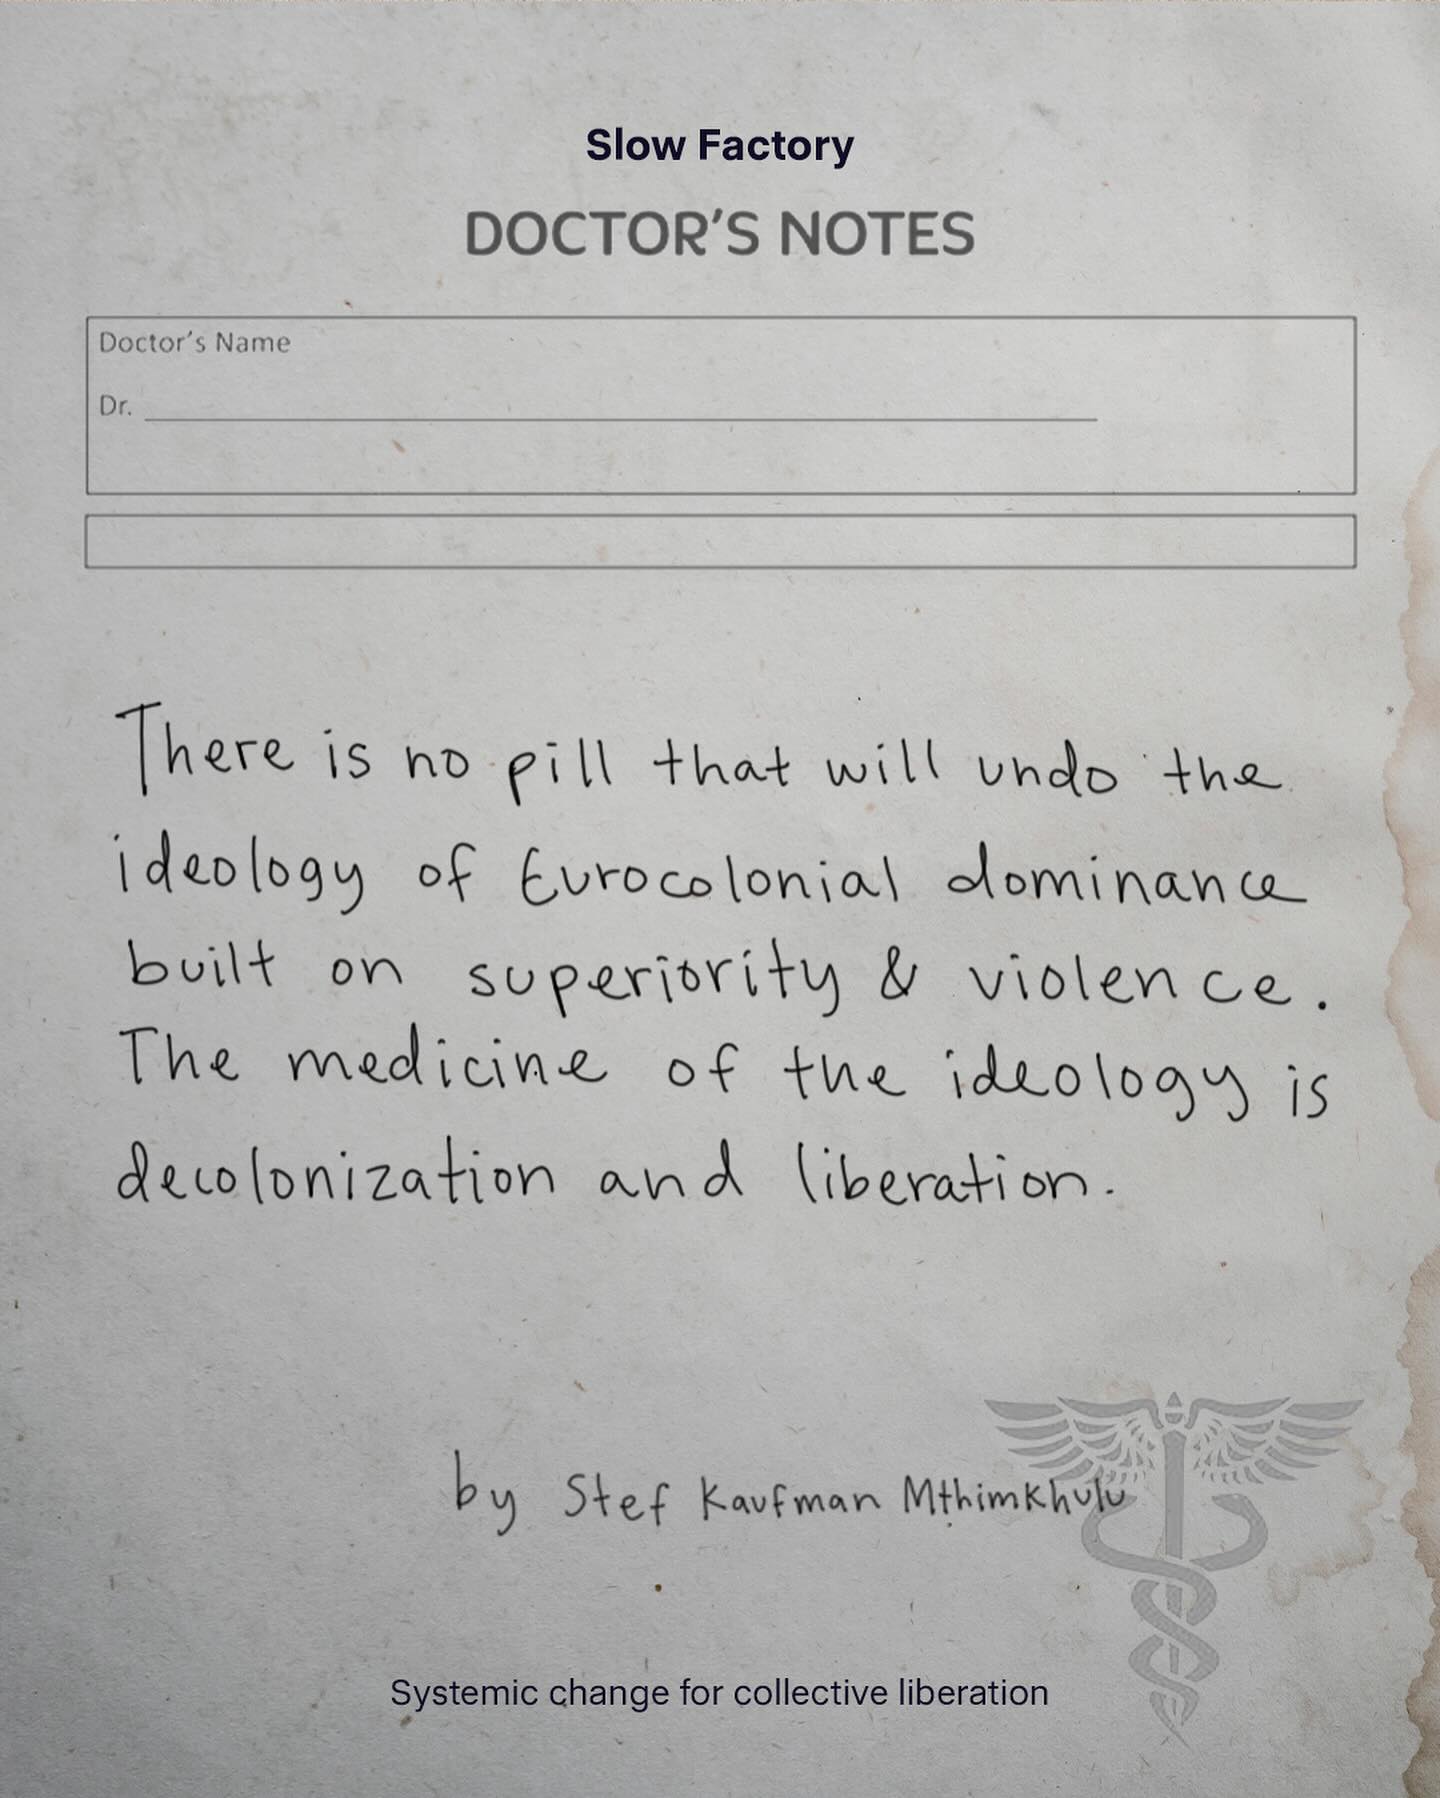 Slow Factory
DOCTOR'S NOTES
Doctor's Name
Dr.
There is no pill that will undo the
ideology of Eurocolonial dominance
built on superiority & violence.
The medicine of the ideology is
decolonization and liberation.
by Stef Kaufman Mthimkhulu
Systemic change for collective liberation